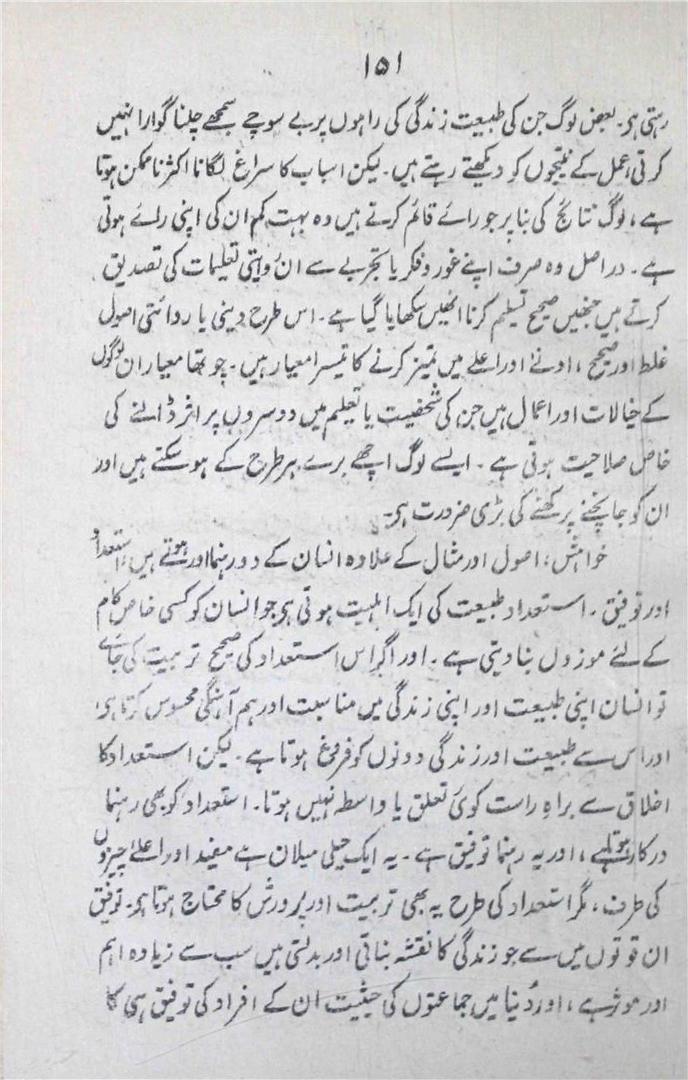 ۱۵۱
رہتی ہو۔ بعض لوگ جن کی طبیعت زندگی کی راہوں پر بے سوچے سمجھے چلنا گوارا نہیں
کرتی، عمل کے نتیجوں کو دیکھتے رہتے ہیں۔ لیکن اسباب کا سراغ لگانا اکثر نا ممکن ہوتا
ہے، لوگ نتائج کی بنا پر جو رائے قائم کرتے ہیں وہ بہت کم ان کی اپنی رائے ہوتی
ہے۔ دراصل وہ صرف اپنے غور و فکر یا تجربے سے ان دینی تعلیمات کی تصدیق
کرتے ہیں جنھیں صحیح تسلیم کرنا انھیں سکھایا گیا ہے۔ اس طرح دینی یا روائتی اصول
غلط اور صحیح، ادنے اور اعلے میں تمیز کرنے کا تیسرا معیار ہیں۔ چوتھا معیار ان لوگوں
کے خیالات اور اعمال ہیں جن کی شخصیت یا تعلیم میں دوسروں پر اثر ڈالنے کی
خاص صلاحیت ہوتی ہے۔ ایسے لوگ اچھے برے ہر طرح کے ہو سکتے ہیں اور
ان کو جانچنے پرکھنے کی بڑی ضرورت ہو۔
خواہش، اصول اور مثال کے علاوہ انسان کے دو رہنما اور ہوتے ہیں، استعداد
اور توفیق۔ استعداد طبیعت کی ایک اہلیت ہوتی ہو جو انسان کو کسی خاص کام
کے لئے موزوں بنا دیتی ہے۔ اور اگر اس استعداد کی صحیح تربیت کی جائے
تو انسان اپنی طبیعت اور اپنی زندگی میں مناسبت اور ہم آہنگی محسوس کرتا ہو،
اور اس سے طبیعت اور زندگی دونوں کو فروغ ہوتا ہے۔ لیکن استعداد کا
اخلاق سے براہ راست کوئی تعلق یا واسطہ نہیں ہوتا۔ استعداد کو بھی رہنما
درکار ہوتا ہے، اور یہ رہنما توفیق ہے۔ یہ ایک جبلی میلان ہے مفید اور اعلےٰ چیزوں
کی طرف، مگر استعداد کی طرح یہ بھی تربیت اور پرورش کا محتاج ہوتا ہو۔ توفیق
ان قوتوں میں سے جو زندگی کا نقشہ بناتی اور بدلتی ہیں سب سے زیادہ اہم
اور موثر ہے، اور دُنیا میں جماعتوں کی حیثیت ان کے افراد کی توفیق ہی کا